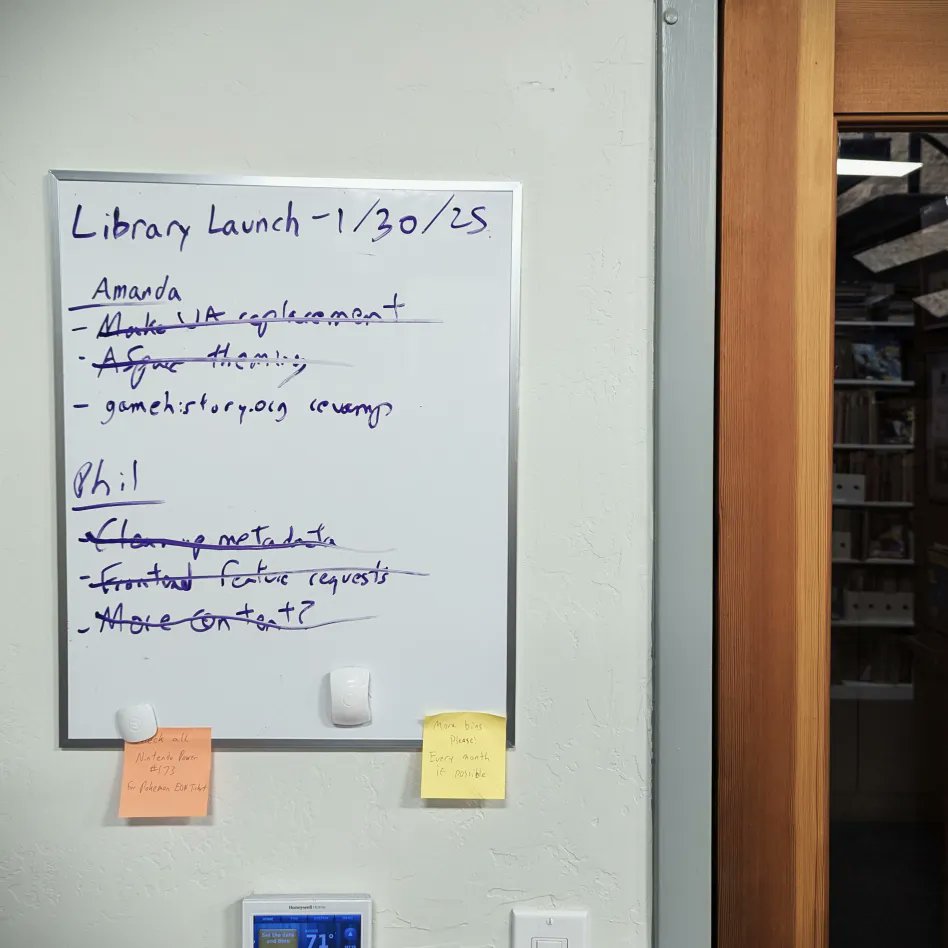 Library Launch - 1/30/25
Amanda
- Make UA replacement
- ASpace theming
- gamehistory.org revamp
Phil
- Cleanup metadata
- Frontend feature requests
- More content?
Check all
Nintendo Power
#173
for Pokemon EON Ticket
More bins
Please!
Every month
if possible
Honeywell Home
HOME
FAN
SYSTEM
MENU
Set the date
and time
71°